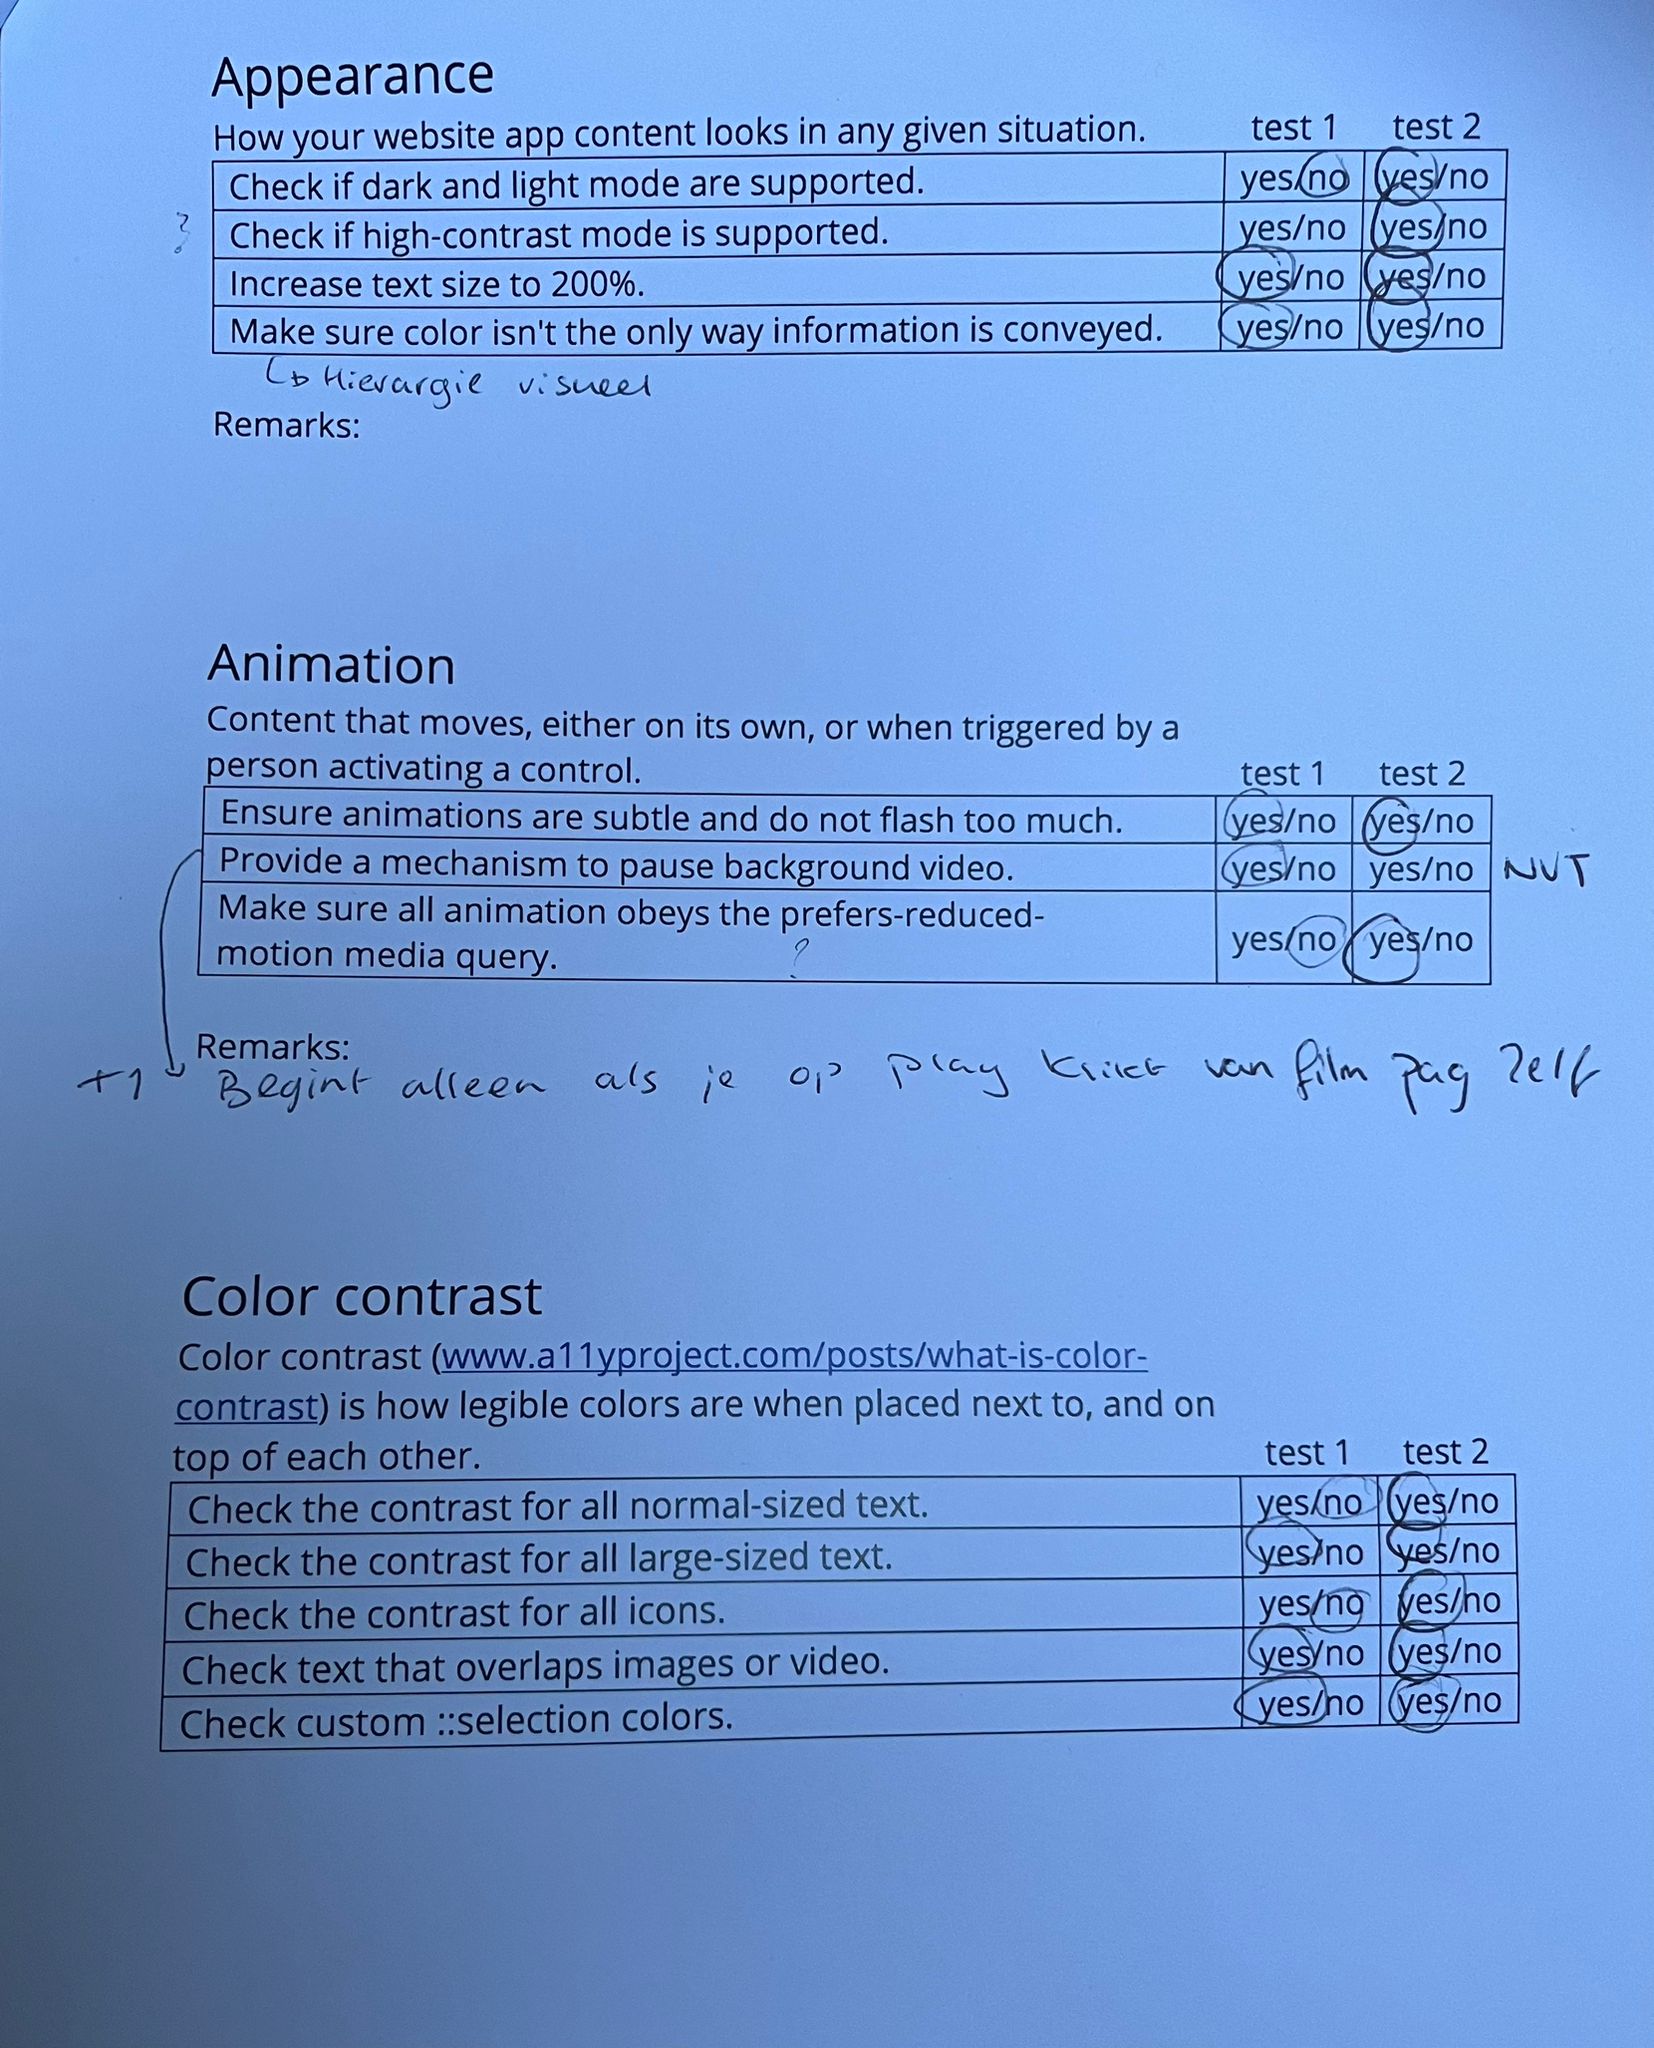 Appearance
How your website app content looks in any given situation. test 1 test 2
Check if dark and light mode are supported. yes/no yes/no
? Check if high-contrast mode is supported. yes/no yes/no
Increase text size to 200%. yes/no yes/no
Make sure color isn't the only way information is conveyed. yes/no yes/no
Hierargie visueel
Remarks:
Animation
Content that moves, either on its own, or when triggered by a
person activating a control. test 1 test 2
Ensure animations are subtle and do not flash too much. yes/no yes/no
Provide a mechanism to pause background video. yes/no yes/no NVT
Make sure all animation obeys the prefers-reduced-
motion media query. ? yes/no yes/no
Remarks:
+1 Begint alleen als je op play klikt van film pag zelf
Color contrast
Color contrast (www.a11yproject.com/posts/what-is-color-
contrast) is how legible colors are when placed next to, and on
top of each other. test 1 test 2
Check the contrast for all normal-sized text. yes/no yes/no
Check the contrast for all large-sized text. yes/no yes/no
Check the contrast for all icons. yes/no yes/no
Check text that overlaps images or video. yes/no yes/no
Check custom ::selection colors. yes/no yes/no